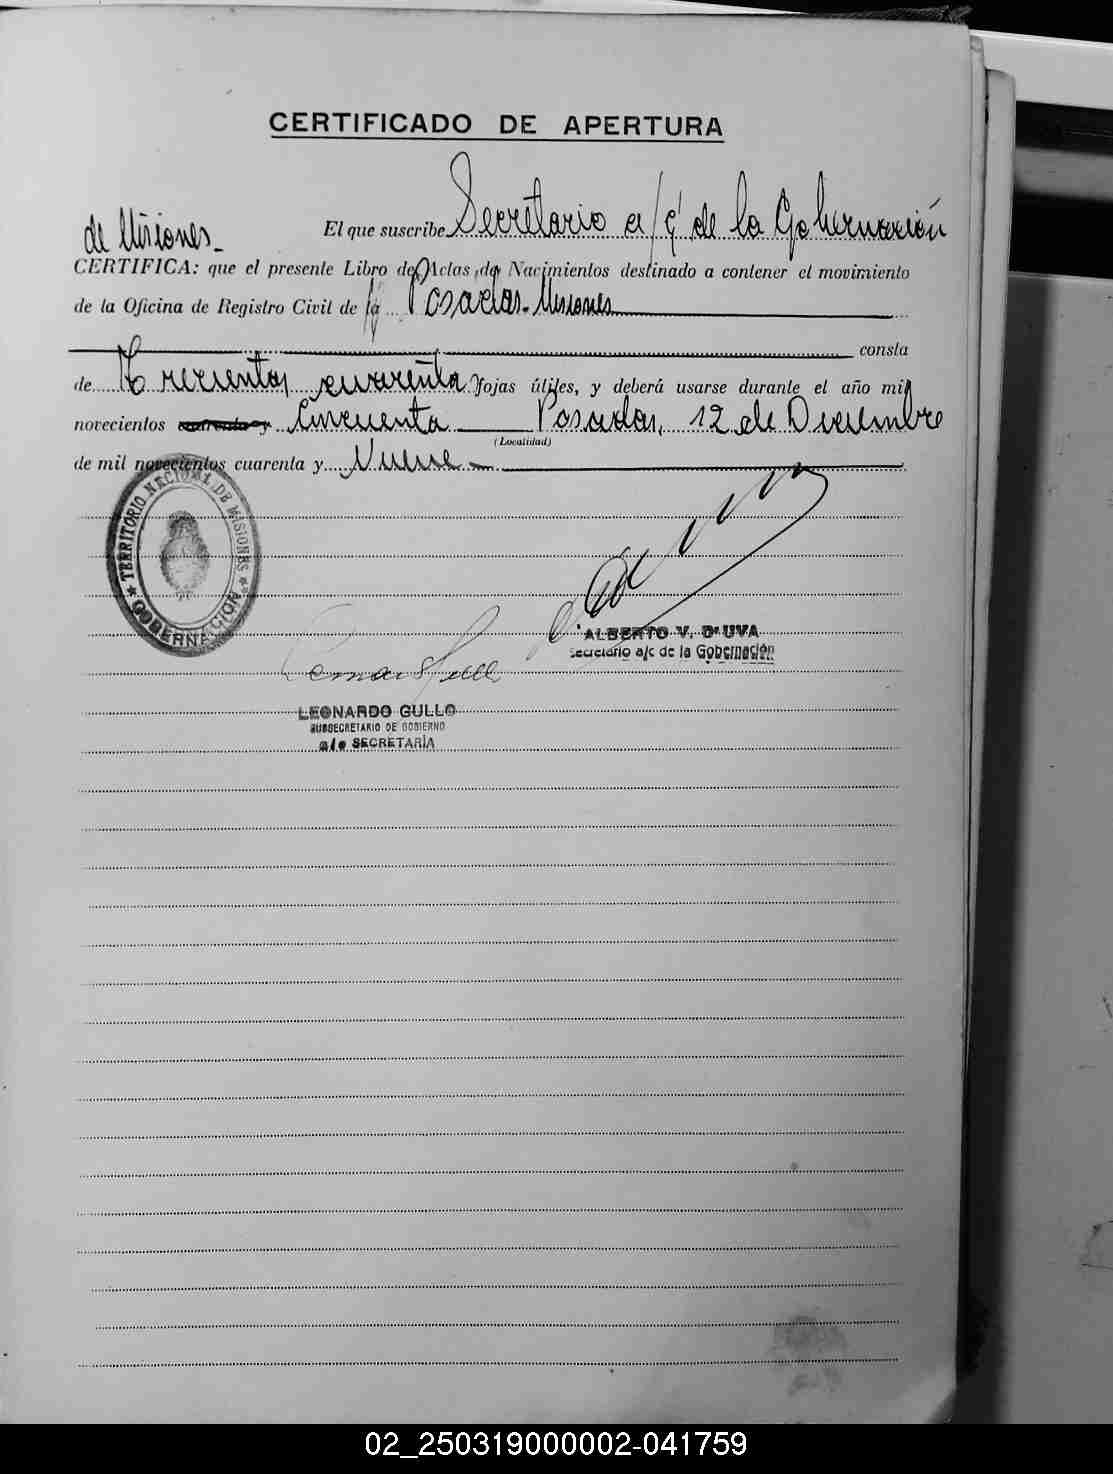 CERTIFICADO DE APERTURA
El que suscribe Secretario a/c de la Gobernación
de Misiones.-
CERTIFICA: que el presente Libro de Actas de Nacimientos destinado a contener el movimiento
de la Oficina de Registro Civil de Posadas. Misiones
consta
de Trescientos cuarenta fojas útiles, y deberá usarse durante el año mil
novecientos cuarenta y Cincuenta Posadas, 12 de Diciembre
(Localidad)
de mil novecientos cuarenta y Nueve
TERRITORIO NACIONAL DE MISIONES
GOBERNACION
ALBERTO V. D'UVA
Secretario a/c de la Gobernación
LEONARDO GULLO
SUBSECRETARIO DE GOBIERNO
a/c SECRETARIA
02_250319000002-041759